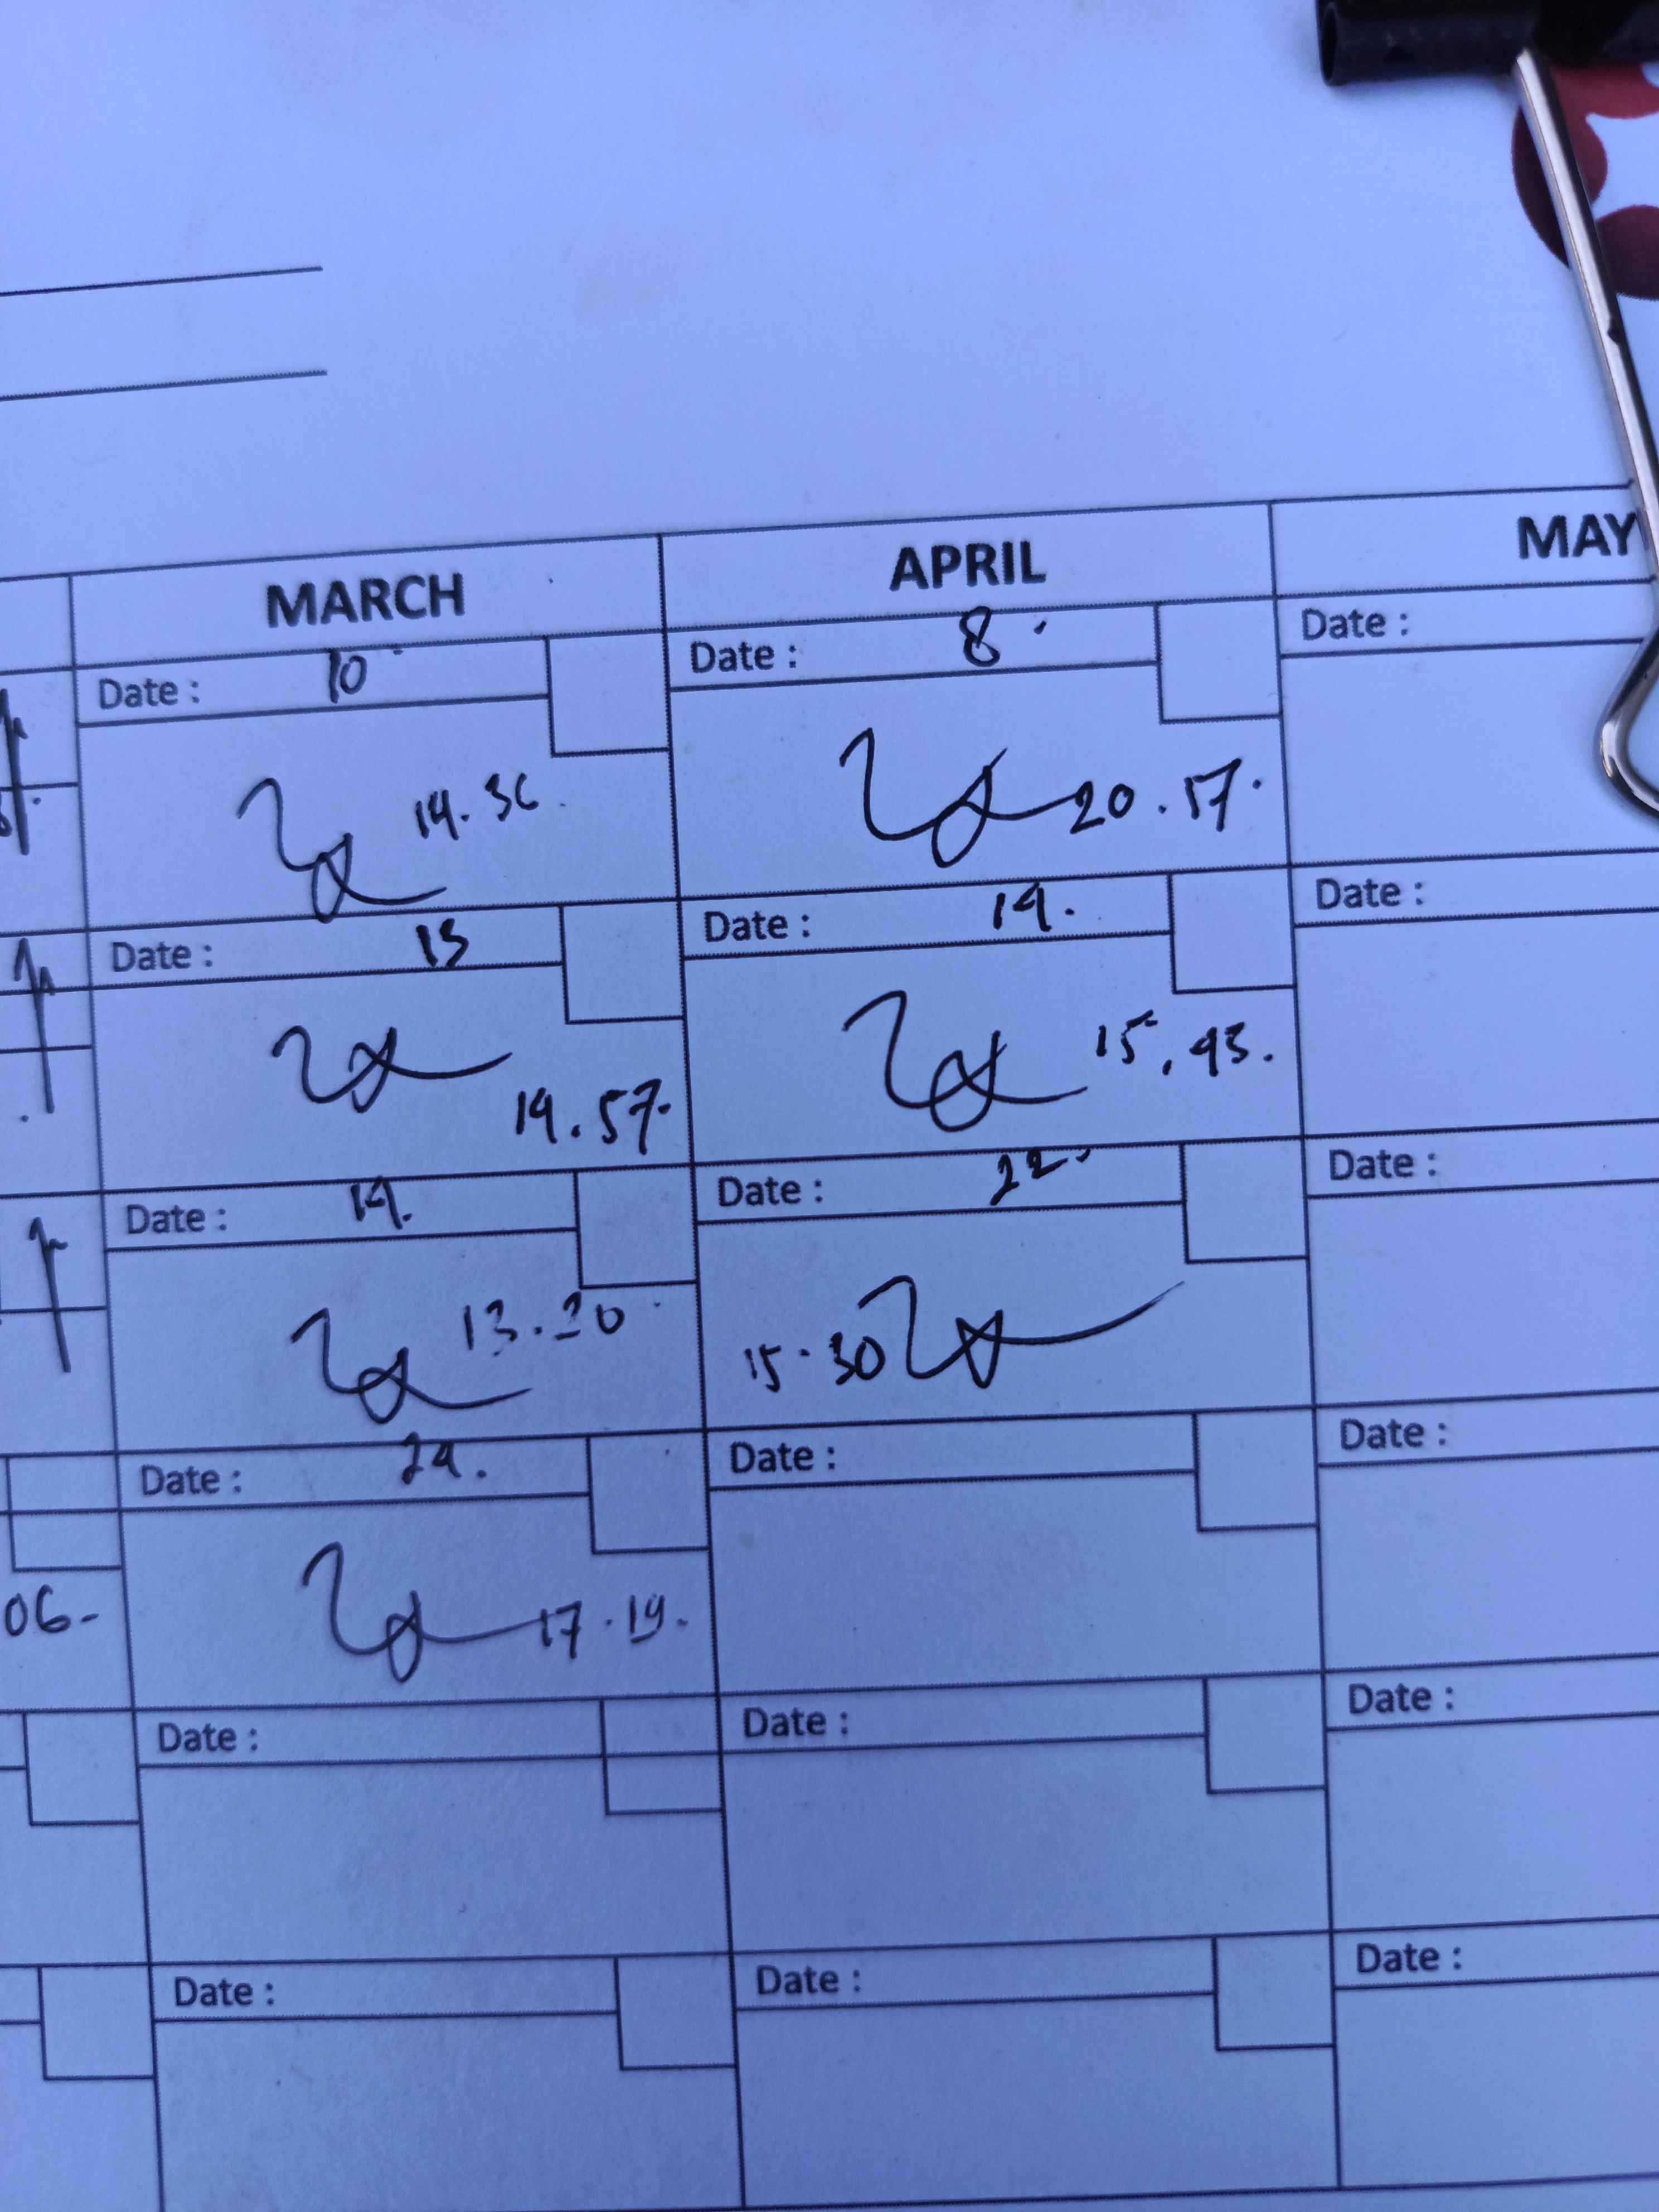 MARCH APRIL MAY
Date : 10 Date : 8 Date :
14.36 20.17.
Date : 13 Date : 14. Date :
14.57. 15.43.
Date : 14. Date : 22 Date :
13.20 15.30
Date : 24. Date : Date :
06- 17.19.
Date : Date : Date :
Date : Date : Date :